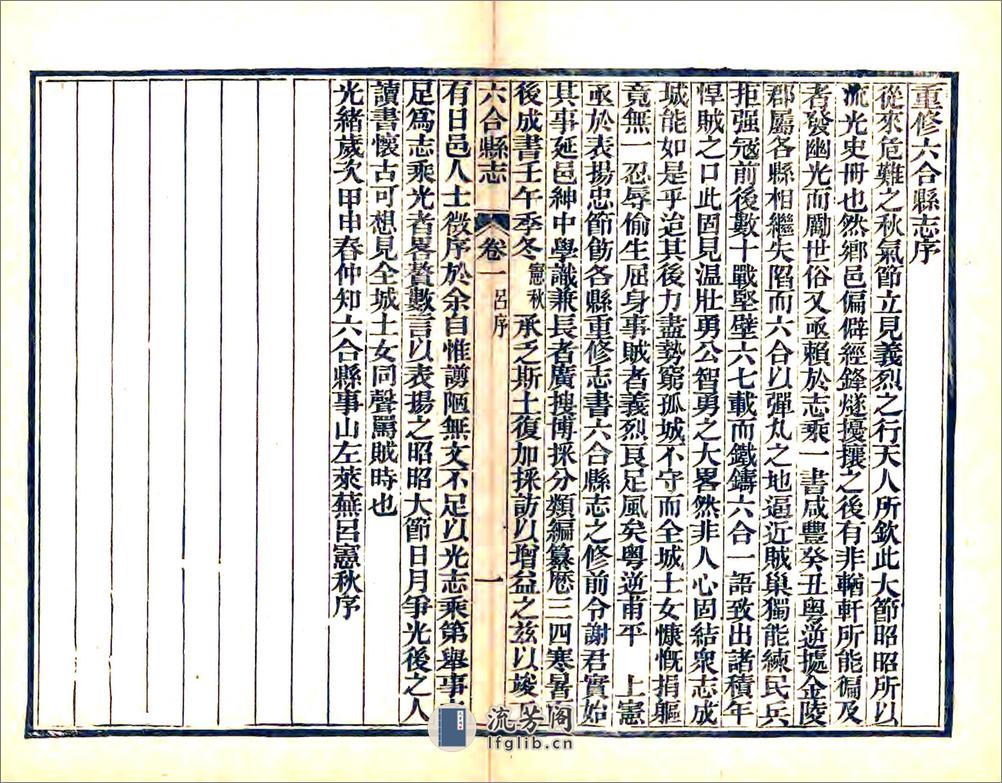 重修六合縣志序
從來危難之秋氣節立見義烈之行天人所欽此大節昭昭所以
流光史冊也然鄉邑偏僻經鋒燧擾攘之後有非輶軒所能徧及
者發幽光而勵世俗又亟賴於志乘一書咸豐癸丑粵逆據金陵
郡屬各縣相繼失陷而六合以彈丸之地逼近賊巢獨能練民兵
拒强冦前後數十戰堅壁六七載而鐵鑄六合一語致出諸積年
悍賊之口此固見温壯勇公智勇之大畧然非人心固結衆志成
城能如是乎治其後力盡勢窮孤城不守而全城士女慷慨捐軀
竟無一忍辱偷生屈身事賊者義烈良足風矣粵逆甫平 上憲
亟於表揚忠節飭各縣重修志書六合縣志之修前令謝君實始
其事延邑紳中學識兼長者廣搜博採分類編纂歷三四寒暑
後成書壬午季冬憲秋承乏斯土復加採訪以增益之茲以竣
六合縣志 卷一 呂序 一
有日邑人士徵序於余自惟謭陋無文不足以光志乘第舉事
足爲志乘光者畧贅數言以表揚之昭昭大節日月爭光後之人
讀書懷古可想見全城士女同聲罵賊時也
光緒歲次甲申春仲知六合縣事山左萊蕪呂憲秋序
流芳阁
lfglib.cn